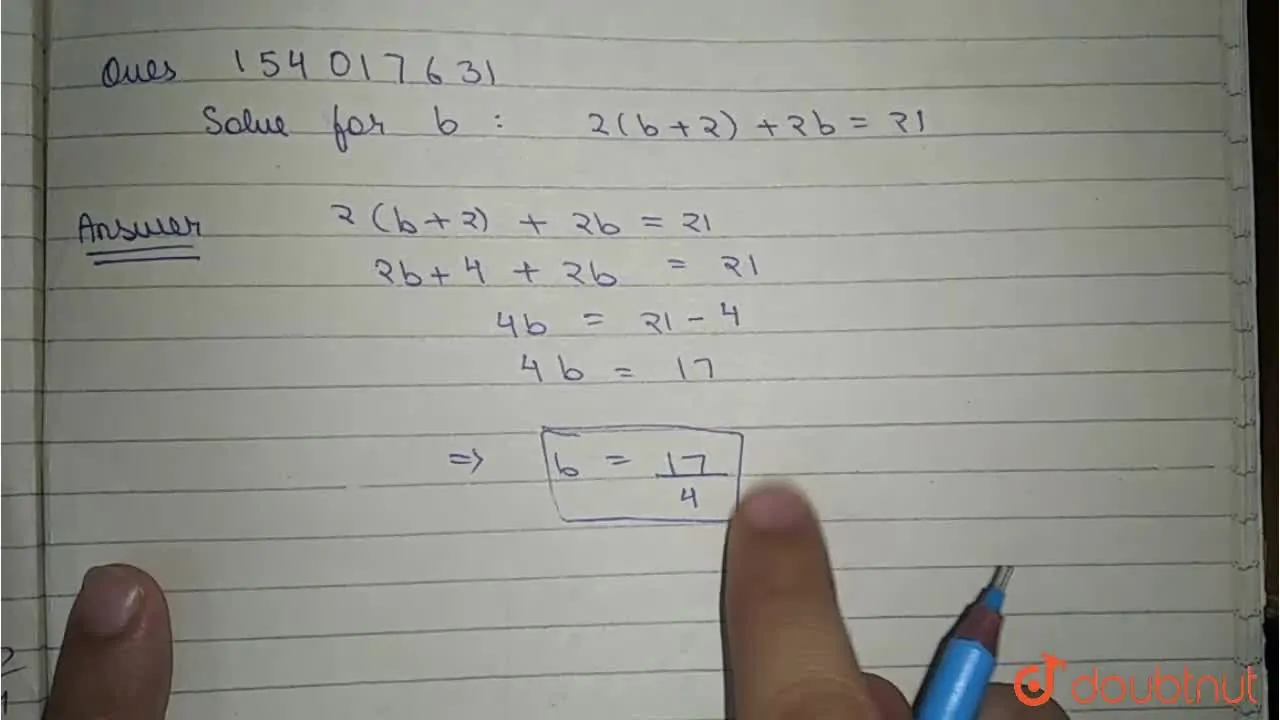 Ques 154017631
Solve for b : 2(b+2) + 2b = 21
Answer 2(b+2) + 2b = 21
2b + 4 + 2b = 21
4b = 21 - 4
4b = 17
⇒ b = 17/4
2
1
doubtnut